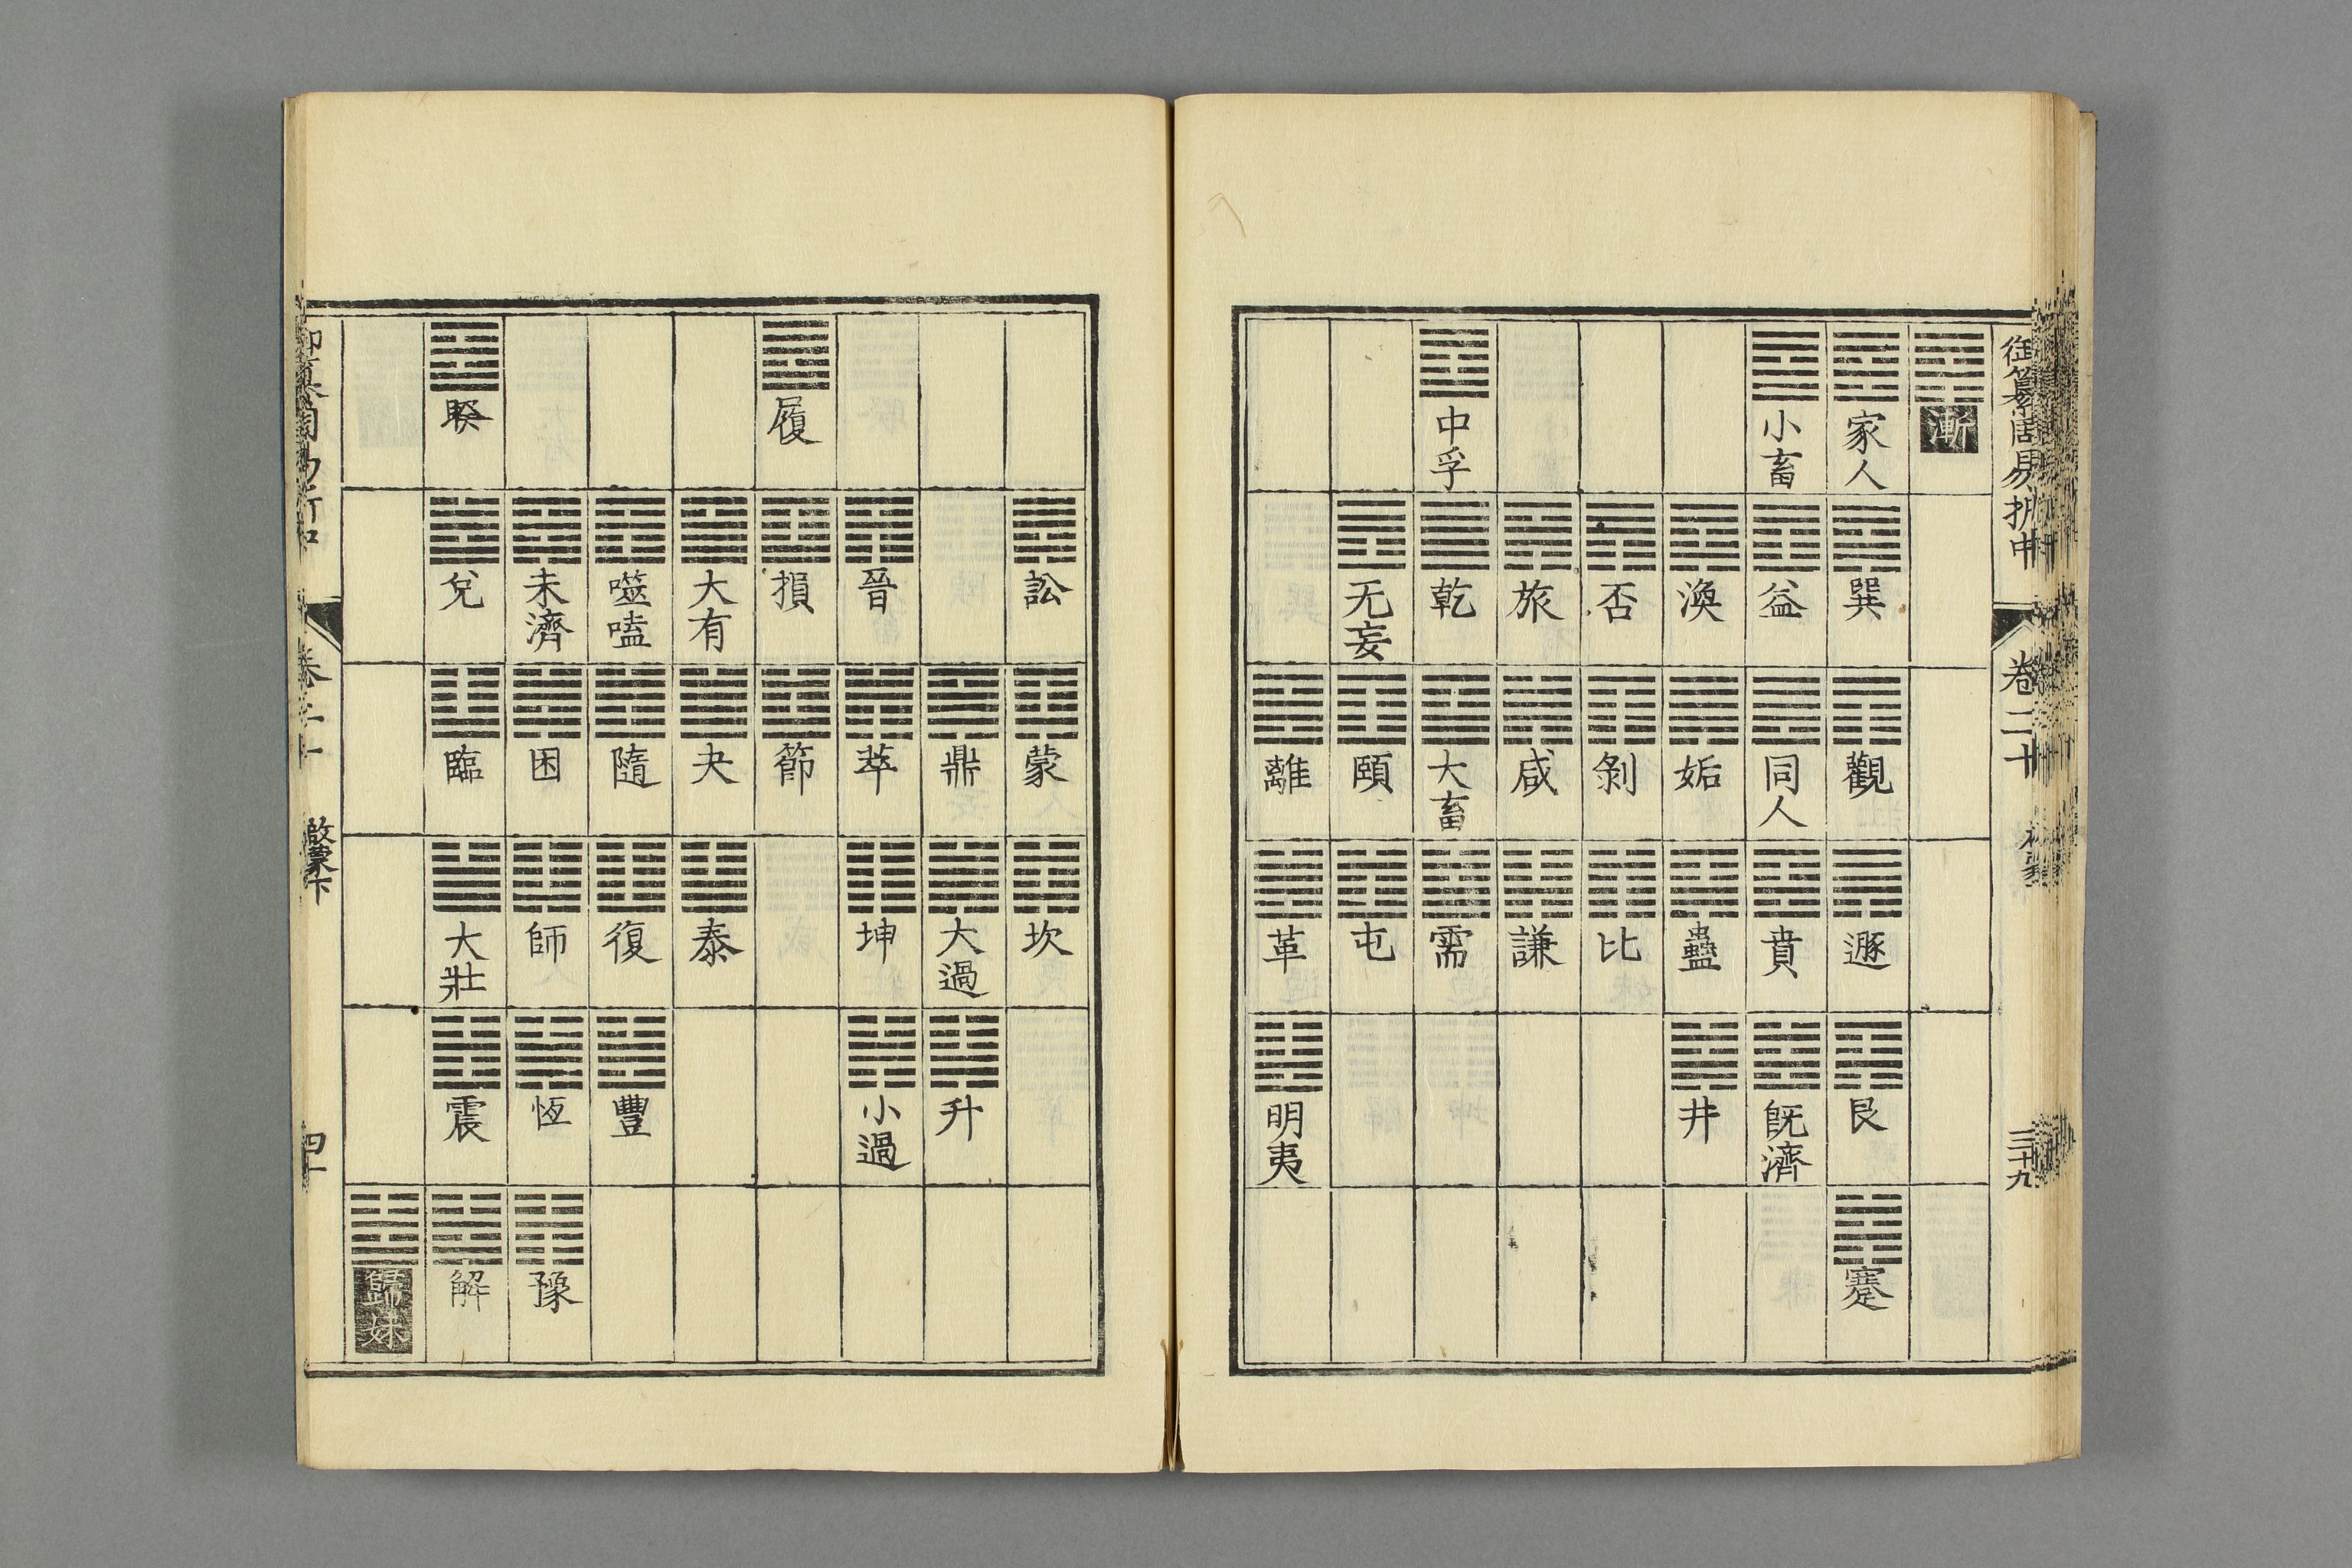 御纂周易折中 卷二十 三十九
漸
家人 巽 觀 遯 艮 蹇
小畜 益 同人 賁 既濟
渙 姤 蠱 井
否 剝 比
旅 咸 謙
中孚 乾 大畜 需
无妄 頤 屯
離 革 明夷
訟 蒙 坎
鼎 大過 升
晉 萃 坤 小過
履 損 節
大有 夬 泰
噬嗑 隨 復 豐
未濟 困 師 恆 豫
睽 兌 臨 大壯 震 解
歸妹
御纂周易折中 卷二十 啟蒙下 四十